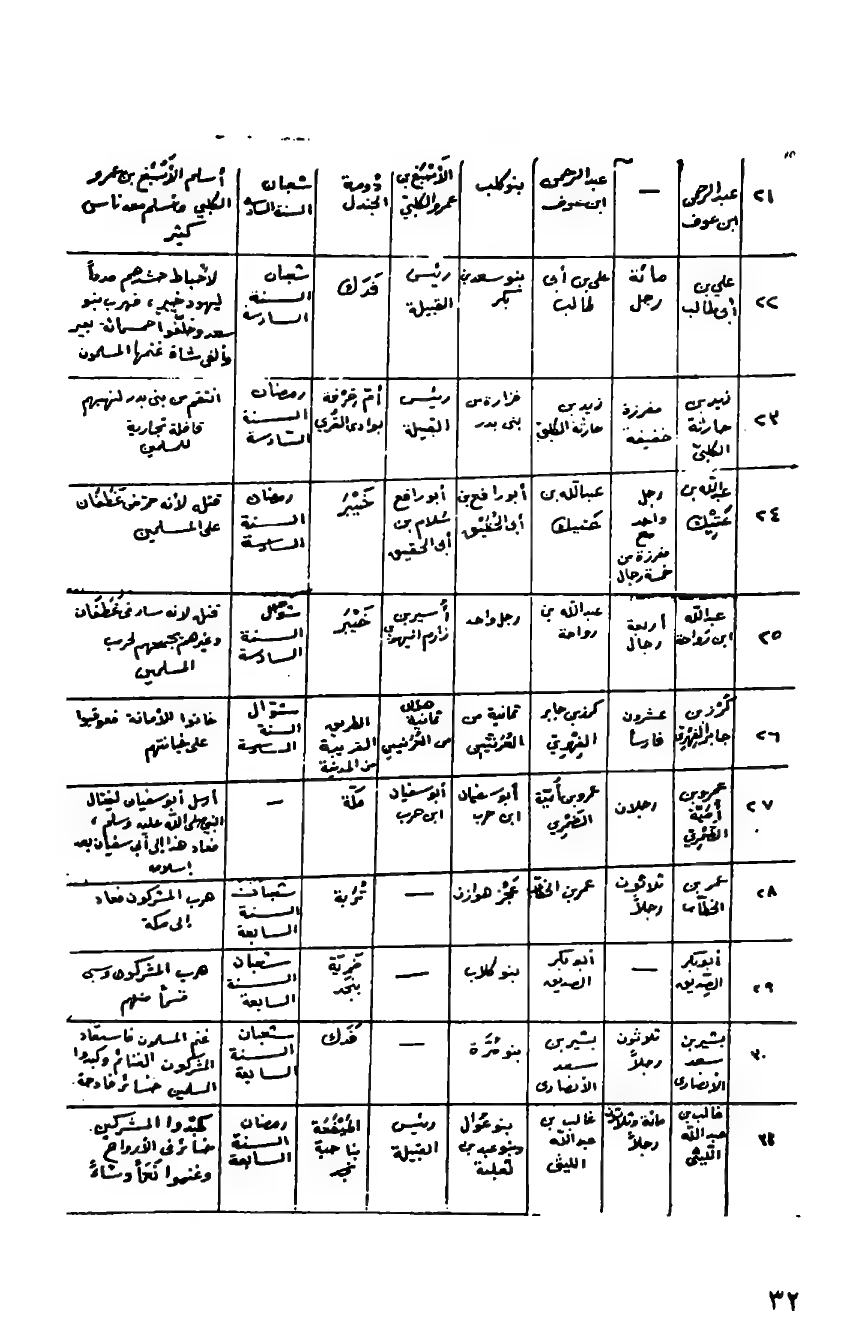 ٢١ | عبدالرحمن ابن عوف | — | عبدالرحمن ابن عوف | بنو كلب | الأَصْبَغ بن عمرو الكلبيّ | دُومة الجندل | شعبان السنة السادسة | أسلم الأَصْبَغ بن عمرو الكلبي وأسلم معه ناس كثير
٢٢ | علي بن أبى طالب | مائة رجل | علي بن أبى طالب | بنو سعد بن بكر | رئيس القبيلة | فَدَك | شعبان السنة السادسة | لإحباط حشدهم مدداً ليهود خيبر، فهرب بنو سعد وخلّفوا خمسمائة بعير وألفى شاة غنمها المسلمون
٢٣ | زيد بن حارثة الكلبيّ | مفرزة خفيفة | زيد بن حارثة الكلبيّ | فزارة من بنى بدر | رئيس القبيلة | أمّ قِرْفة بوادى القُرى | رمضان السنة السادسة | انتقم من بنى بدر لنهبهم قافلة تجارية للمسلمين
٢٤ | عبدالله بن عَتِيْك | رجل واحد مع مفرزة من خمسة رجال | عبدالله بن عَتيك | أبو رافع بن أبى الحُقَيْق | أبو رافع سُلام بن أبى الحقيق | خَيْبَرُ | رمضان السنة السادسة | قتل لأنه حرّض غَطَفَان على المسلمين
٢٥ | عبدالله ابن رَوَاحة | أربعة رجال | عبدالله بن رواحة | رجل واحد | أُسير بن زارم اليهودي | خَيْبَرُ | شوّال السنة السادسة | قتل لأنه سار فى غَطَفَان وغيرهم يجمعهم لحرب المسلمين
٢٦ | كُرْز بن جابر الفِهْرِيّ | عشرون فارساً | كرز بن جابر الفِهْرِيّ | ثمانية من العُرَنِيّين | ثمانية من العُرَنيين | الطريق القريبة من المدينة | شوّال السنة السادسة | خانوا الأمانة فعوقبوا على خيانتهم
٢٧ | عمرو بن أميّة الضَّمْرِيّ | رجلان | عمرو بن أُميّة الضَّمْرِي | أبو سفيان ابن حرب | أبو سفيان ابن حرب | مكّة | — | أرسل أبو سفيان ليغتال النبي صلى الله عليه وسلم، فعاد هذا إلى أبي سفيان بعد إسلامه
٢٨ | عمر بن الخطّاب | ثلاثون رجلاً | عمر بن الخطّاب | عَجُز هوازن | — | تُرَابة | شعبان السنة السابعة | هرب المشركون فعاد إلى مكة
٢٩ | أبو بكر الصِّديق | — | أبو بكر الصديق | بنو كلاب | — | ضَرِيَّة بنجد | شعبان السنة السابعة | هرب المشركون وسبى قسماً منهم
٣٠ | بشير بن سعد الأنصارى | ثلاثون رجلاً | بشير بن سعد الأنصارى | بنو مُرَّة | — | فَدَك | شعبان السنة السابعة | غنم المسلمون فاستعاد المشركون الغنائم وكبدوا المسلمين خسائر فادحة
غالب بن عبدالله اللّيثي | مائة وثلاثون رجلاً | غالب بن عبدالله الليثى | بنو عُوَال وبنو عبد بن ثعلبة | رئيس القبيلة | المَيْفَعَة بناحية نجد | رمضان السنة السابعة | كبّدوا المشركين خسائر فى الأرواح وغنموا نَعَماً وشاءً
٣٢